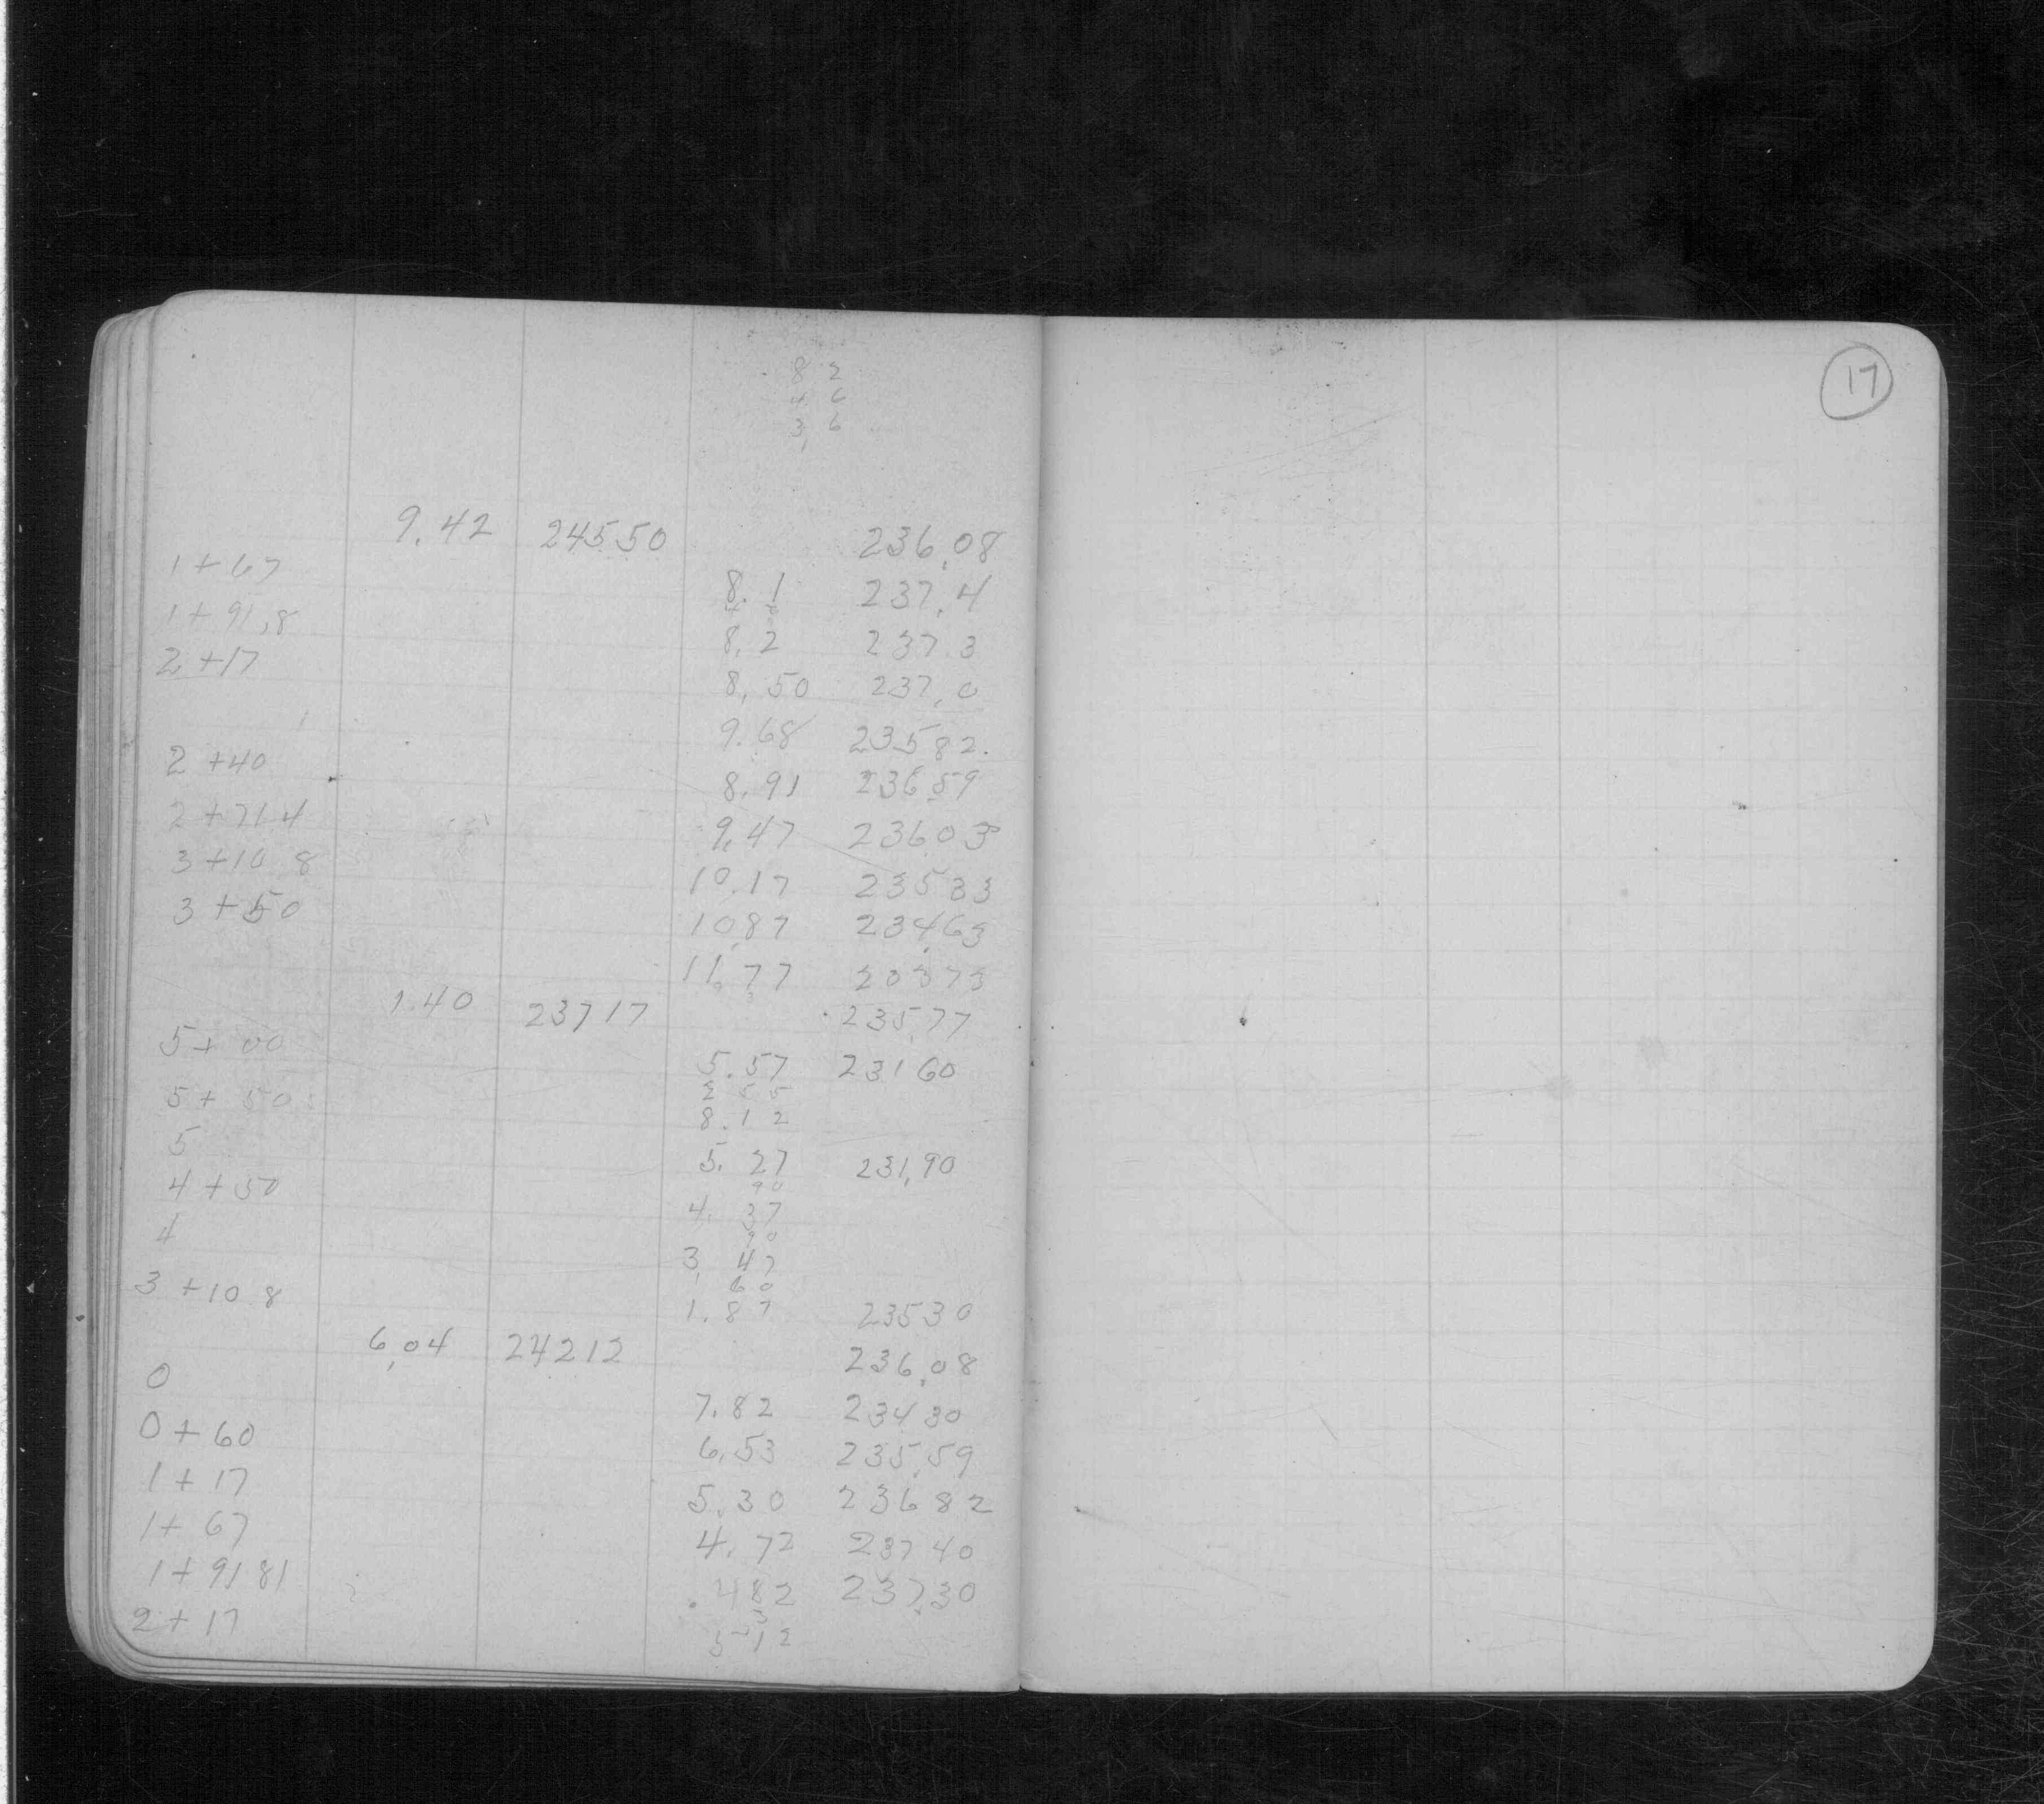 17
8 2
4 6
3, 6
9.42 24550 236,08
1+67
8.1 237.4
1+91,8
8.2 237.3
2+17
8.50 237,0
9.68 23582.
2+40
8.91 23659
2+714
9.47 23603
3+10 8
10.17 23533
3+50
10,87 23463
11,77
1.40 23717 235,77
5+00
5.57 23160
5+50
2 5 5
8.12
5
5.27 231,90
90
4+50
4.37
90
4
3,47
60
3+10 8
1.87 23530
6,04 24212 236,08
0
7.82 23430
0+60
6,53 235,59
1+17
5.30 23682
1+67
4.72 23740
1+9181
.482 237.30
2+17
5 12